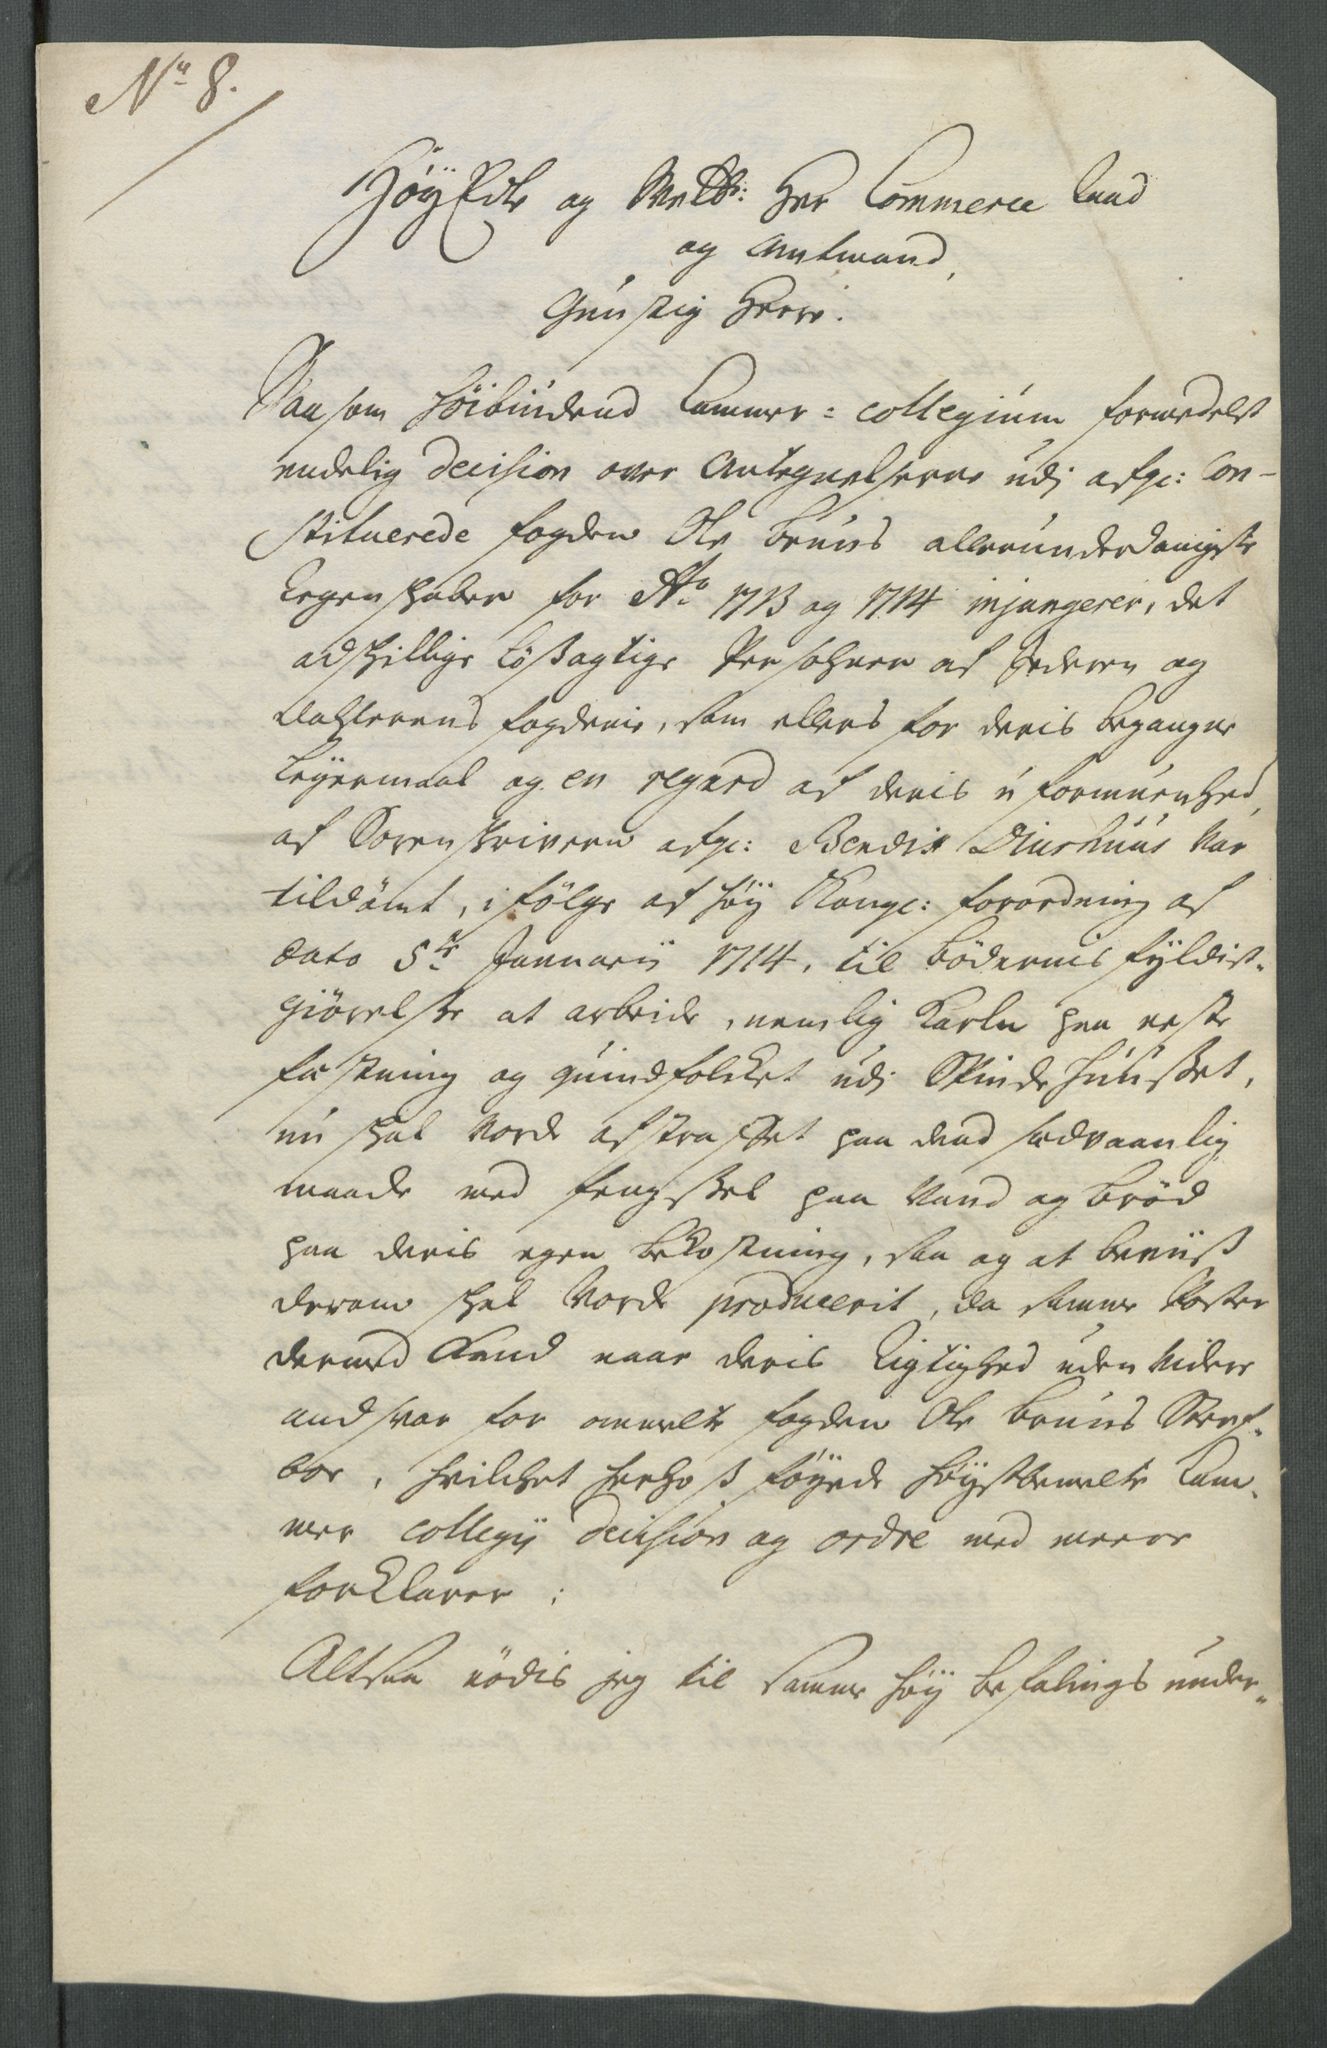 No 8.
HöyEdle og Welb: Her Commerce Raad
og Amtmand,
Gunstig Herre.
Saasom Höibiudend Cammer-Collegium formedelst
endelig Decision over Antegnelserne udj afg: Con-
stituerede fogden Ole Bruns allerunderdanigste
Regenskaber for Ao 1713 og 1714 injungerer, det
adskillige Lößagtige Persohner af Jederen og
Dahlernes fogderie, som ellers for deris begangne
Leyermaal og en regard af deris uformuenhed,
af Sorenskriveren afg: Bendix Diurhuus var
tildömt, i fölge af höy Kongl: forordning af
dato 5te Januarii 1714, til Bödernis fyldist-
giörelse at arbeide, nemlig Karlen paa neste
fæstning og quindfolchet udj Spindehuusset,
nu skal vorde afstraffet paa dend sedvaanlig
maade med fengßel paa Vand og Bröd
paa deris egen bekostning, saa og at beviiß
derom skal vorde producerit, da samme Poster
dermed kand naae deris Rigtighed uden videre
andsvar for ommelte fogden Ole Bruns Sterf-
boe, hvilchet herhoß föyede höystbemelte Cam-
mer Collegii Decision og ordre med meere
forklarer;
Altsaa nödis jeg til samme höy befalings under-